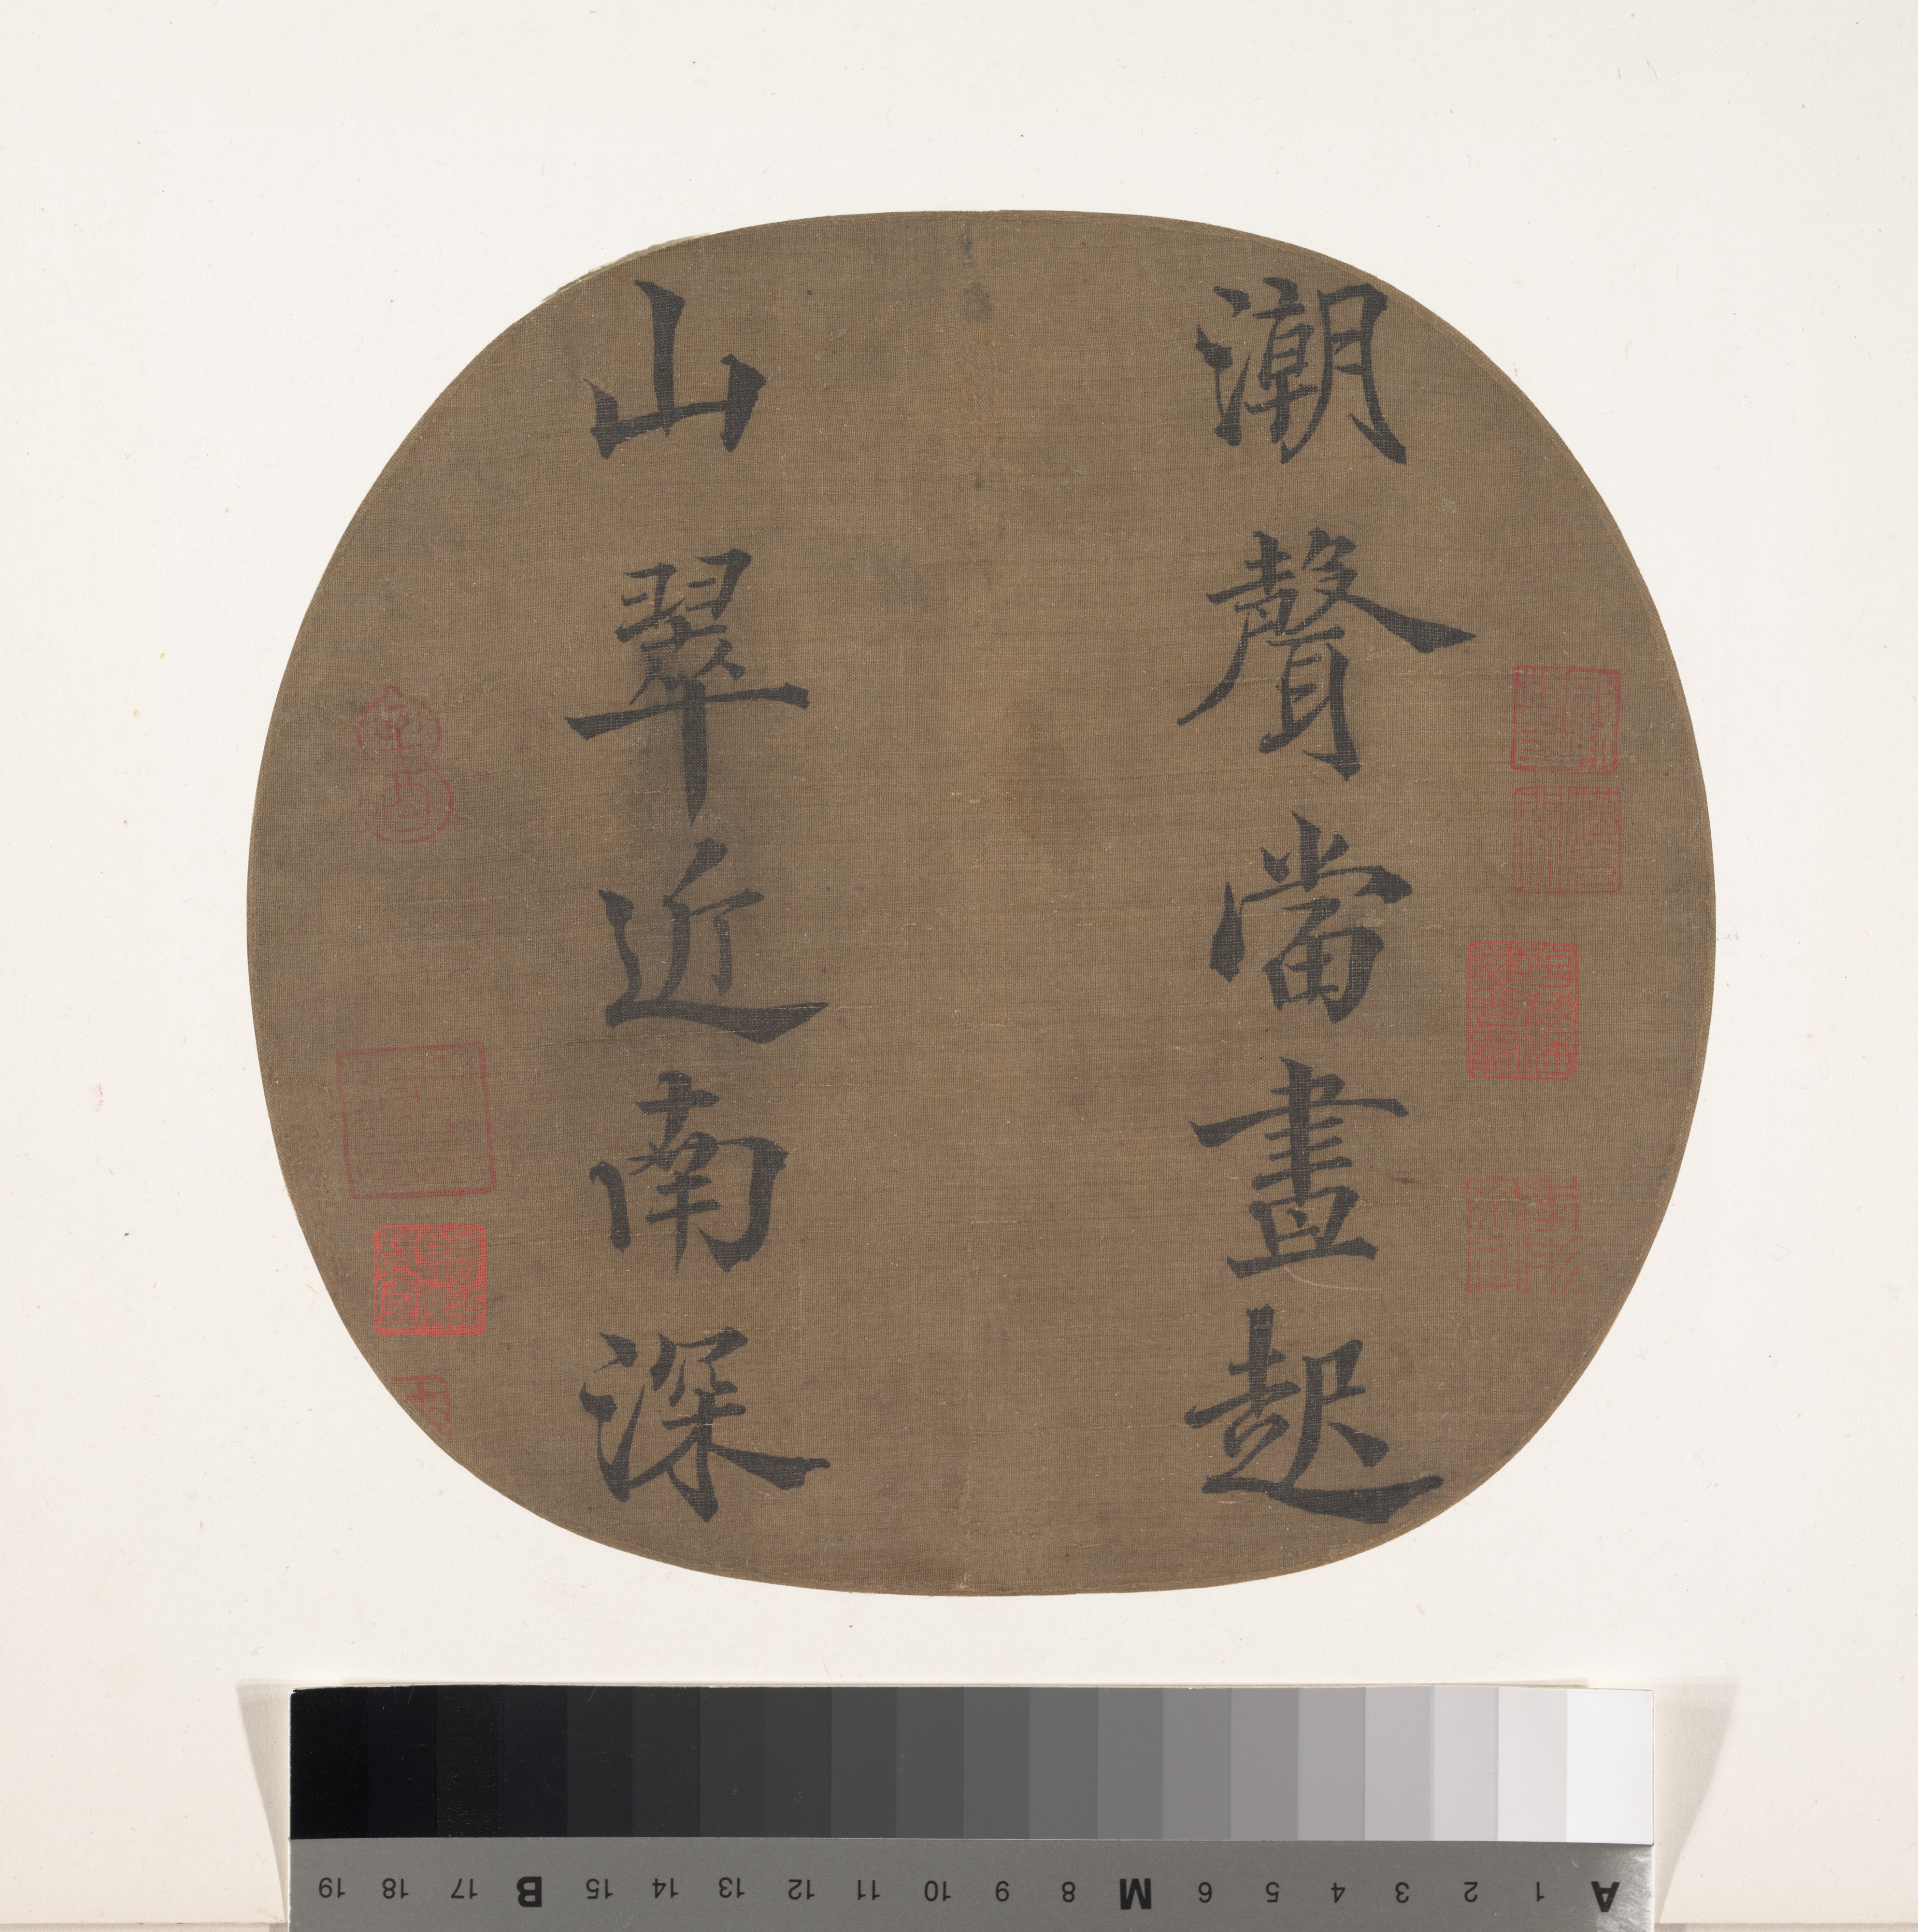 潮聲當晝起
山翠近南深
辛酉
A 1 2 3 4 5 6 M 8 9 10 11 12 13 14 15 B 17 18 19